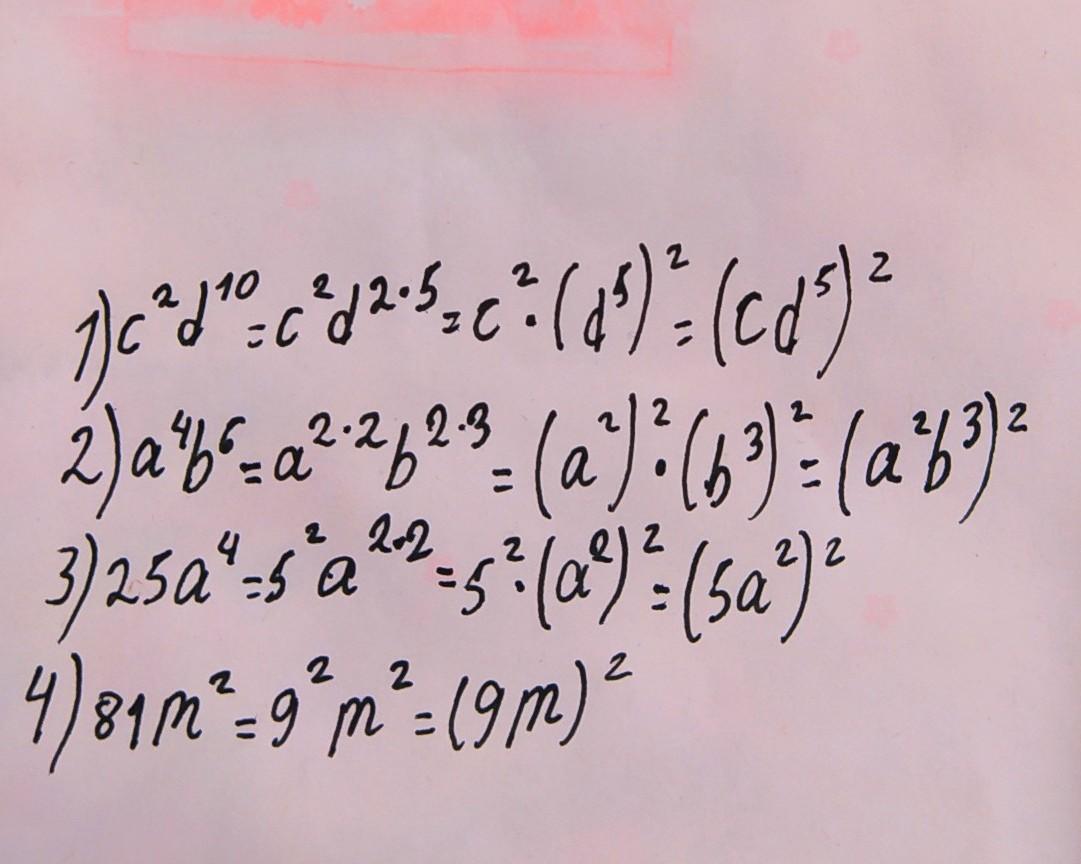 1) c²d¹⁰ = c²d²·⁵ = c² · (d⁵)² = (cd⁵)²
2) a⁴b⁶ = a²·²b²·³ = (a²)² · (b³)² = (a²b³)²
3) 25a⁴ = 5²a²·² = 5² · (a²)² = (5a²)²
4) 81m² = 9²m² = (9m)²